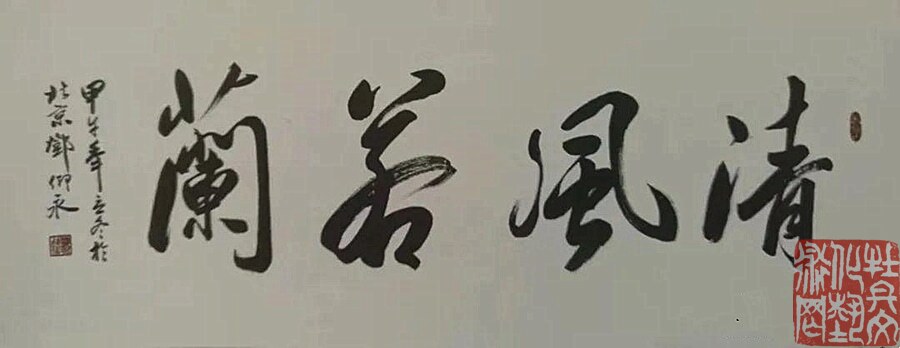 清風若蘭
甲午年立冬於
北京鄧仰永